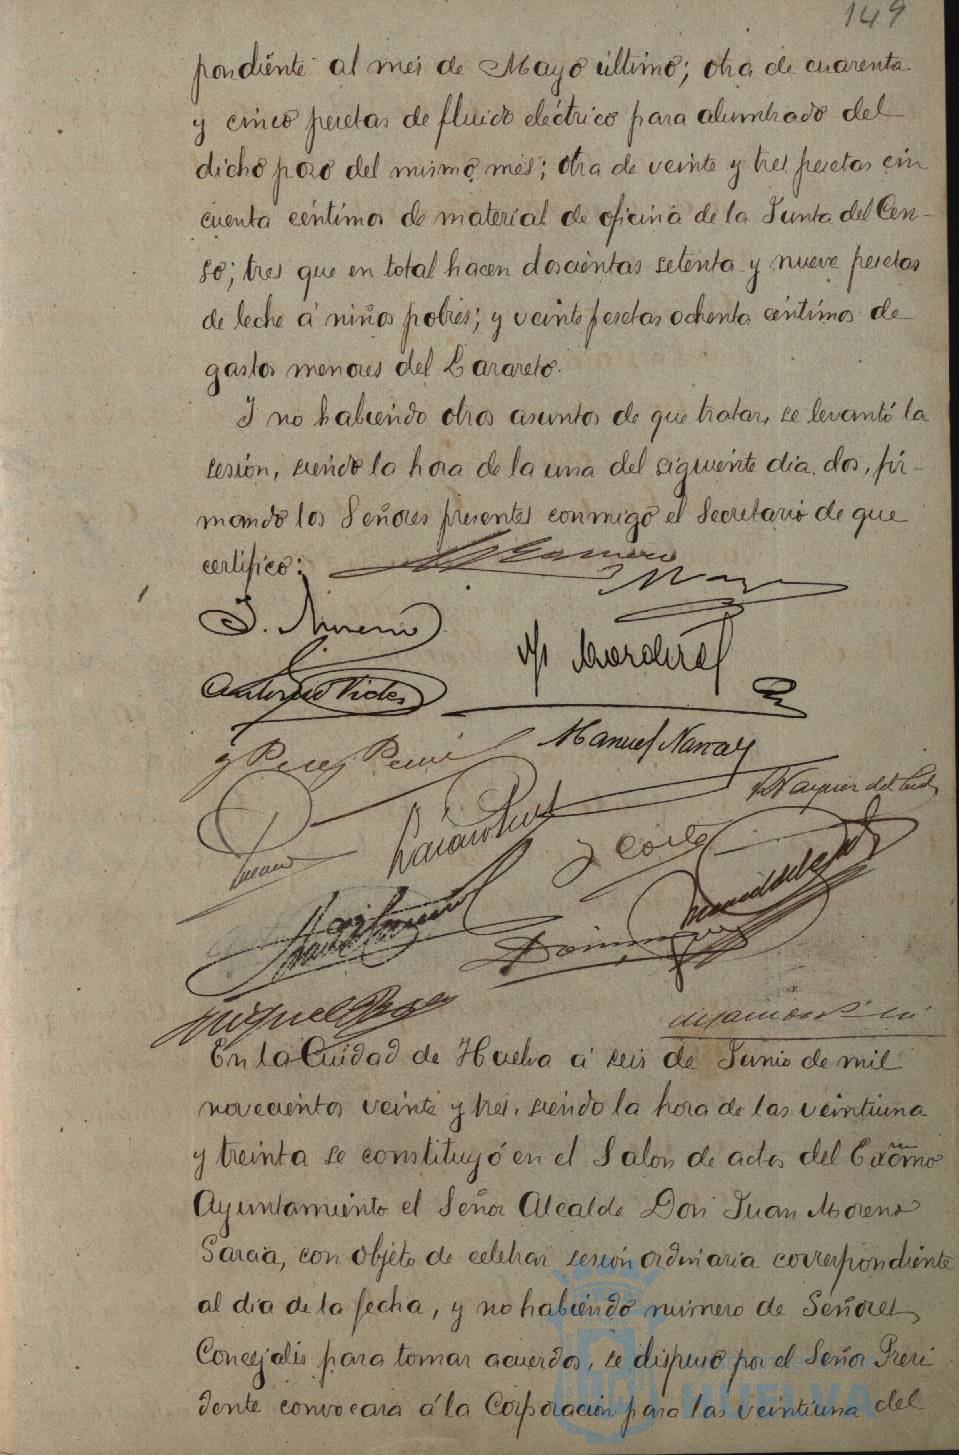 149
pondiente al mes de Mayo último; otra de cuarenta
y cinco pesetas de fluido eléctrico para alumbrado del
dicho poso del mismo mes; otra de veinte y tres pesetas cin
cuenta céntimos de material de oficina de la Junta del Cen-
so; tres que en total hacen doscientas setenta y nueve pesetas
de leche á niños pobres; y veinte pesetas ochenta céntimos de
gastos menores del Lazareto.
Y no habiendo otros asuntos de que tratar, se levantó la
sesión, siendo la hora de la una del siguiente día dos, fir-
mando los Señores presentes conmigo el Secretario de que
certifico:
J. Moreno
Antonio Vides
Manuel Narray
y Perez
J Corte
Dominguez
Miguel
En la Ciudad de Huelva á seis de Junio de mil
novecientos veinte y tres, siendo la hora de las veintiuna
y treinta se constituyó en el Salon de actos del Excmo
Ayuntamiento el Señor Alcalde Don Juan Moreno
Garcia, con objeto de celebrar sesión ordinaria correspondiente
al dia de la fecha, y no habiendo número de Señores
Concejales para tomar acuerdos, se dispuso por el Señor Presi
dente convocara á la Corporación para las veintiuna del
HUELVA